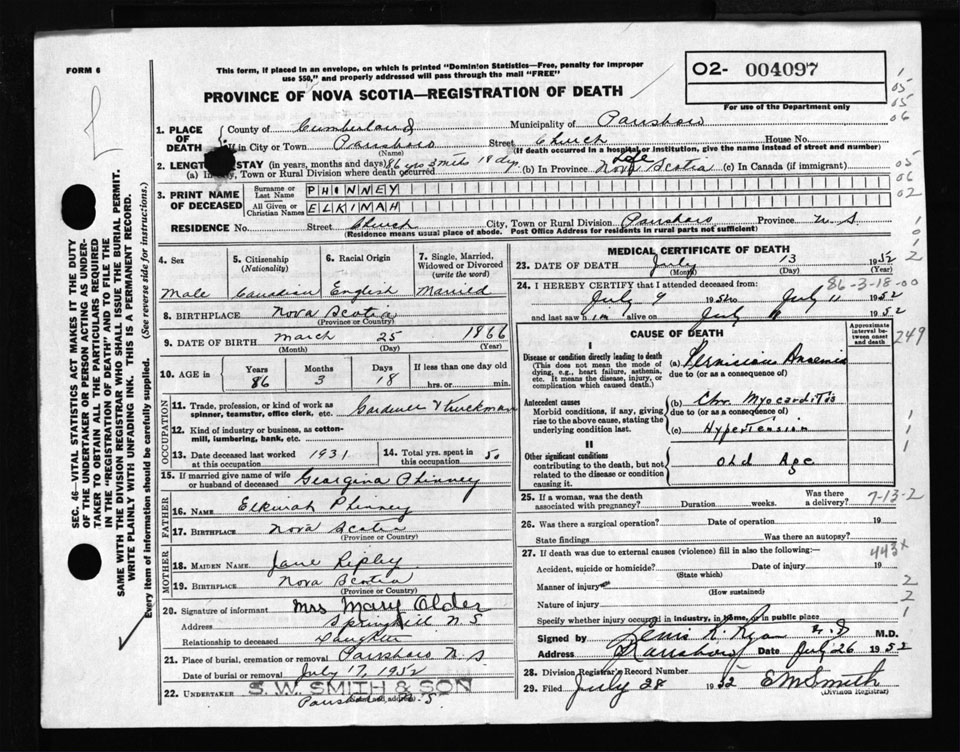 FORM 6
This form, if placed in an envelope, on which is printed "Dominion Statistics—Free, penalty for improper
use $50," and properly addressed will pass through the mail "FREE"
PROVINCE OF NOVA SCOTIA—REGISTRATION OF DEATH
O2- 004097
For use of the Department only
1. PLACE OF DEATH
County of Cumberland Municipality of Parrsboro
If in City or Town Parrsboro Street Church House No.
(Name) (If death occurred in a hospital or institution, give the name instead of street and number)
2. LENGTH STAY (in years, months and days) 86 yrs 3 mths 18 dys Life
(a) In City, Town or Rural Division where death occurred (b) In Province Nova Scotia (c) In Canada (if immigrant)
3. PRINT NAME OF DECEASED
Surname or Last Name PHINNEY
All Given or Christian Names ELKINAH
RESIDENCE No. Street Church City, Town or Rural Division Parrsboro Province N. S
(Residence means usual place of abode. Post Office Address for residents in rural parts not sufficient)
4. Sex
Male
5. Citizenship
(Nationality)
Canadian
6. Racial Origin
English
7. Single, Married,
Widowed or Divorced
(write the word)
Married
8. BIRTHPLACE Nova Scotia
(Province or Country)
9. DATE OF BIRTH March 25 1866
(Month) (Day) (Year)
10. AGE in
Years Months Days If less than one day old
86 3 18 hrs. or min.
OCCUPATION
11. Trade, profession or kind of work as
spinner, teamster, office clerk, etc. Gardener & Truckman
12. Kind of industry or business, as cotton-
mill, lumbering, bank, etc.
13. Date deceased last worked
at this occupation 1931
14. Total yrs. spent in
this occupation 50
15. If married give name of wife
or husband of deceased Georgina Phinney
FATHER
16. NAME Elkinah Phinney
17. BIRTHPLACE Nova Scotia
(Province or Country)
MOTHER
18. MAIDEN NAME Jane Ripley
19. BIRTHPLACE Nova Scotia
(Province or Country)
20. Signature of informant Mrs Mary Older
Address Springhill N. S.
Relationship to deceased Daughter
21. Place of burial, cremation or removal Parrsboro N. S
Date of burial or removal July 17, 1952
22. UNDERTAKER S. W. SMITH & SON
(Name and address)
Parrsboro N. S.
MEDICAL CERTIFICATE OF DEATH
23. DATE OF DEATH July 13 1952
(Month) (Day) (Year)
86-3-18-00
24. I HEREBY CERTIFY that I attended deceased from:
July 9 1952 to July 11 1952
and last saw him alive on July 11 1952
CAUSE OF DEATH
Approximate
interval be-
tween onset
and death
I
Disease or condition directly leading to death
(This does not mean the mode of
dying, e.g., heart failure, asthenia,
etc. It means the disease, injury, or
complication which caused death.)
(a) Pernicious Anaemia
due to (or as a consequence of)
Antecedent causes
Morbid conditions, if any, giving
rise to the above cause, stating the
underlying condition last.
(b) Chr Myocarditis
due to (or as a consequence of)
(c) Hypertension
II
Other significant conditions
contributing to the death, but not
related to the disease or condition
causing it.
Old Age
25. If a woman, was the death
associated with pregnancy? Duration weeks. Was there
a delivery?
7-13-2
26. Was there a surgical operation? Date of operation 19
State findings Was there an autopsy?
27. If death was due to external causes (violence) fill in also the following:—
443x
Accident, suicide or homicide? Date of injury 19
(State which)
Manner of injury
(How sustained)
Nature of injury
Specify whether injury occurred in industry, in home, or in public place
Signed by Denis K. Ryan M.D.
Address Parrsboro Date July 26 1952
28. Division Registrar's Record Number
29. Filed July 28 1952 E M Smith
(Division Registrar)
05
05
06
05
06
02
249
SEC. 46—VITAL STATISTICS ACT MAKES IT THE DUTY
OF THE UNDERTAKER OR PERSON ACTING AS UNDER-
TAKER TO OBTAIN ALL THE PARTICULARS REQUIRED
IN THE "REGISTRATION OF DEATH" AND TO FILE THE
SAME WITH THE DIVISION REGISTRAR WHO SHALL ISSUE THE BURIAL PERMIT.
WRITE PLAINLY WITH UNFADING INK. THIS IS A PERMANENT RECORD.
Every item of information should be carefully supplied. (See reverse side for instructions.)